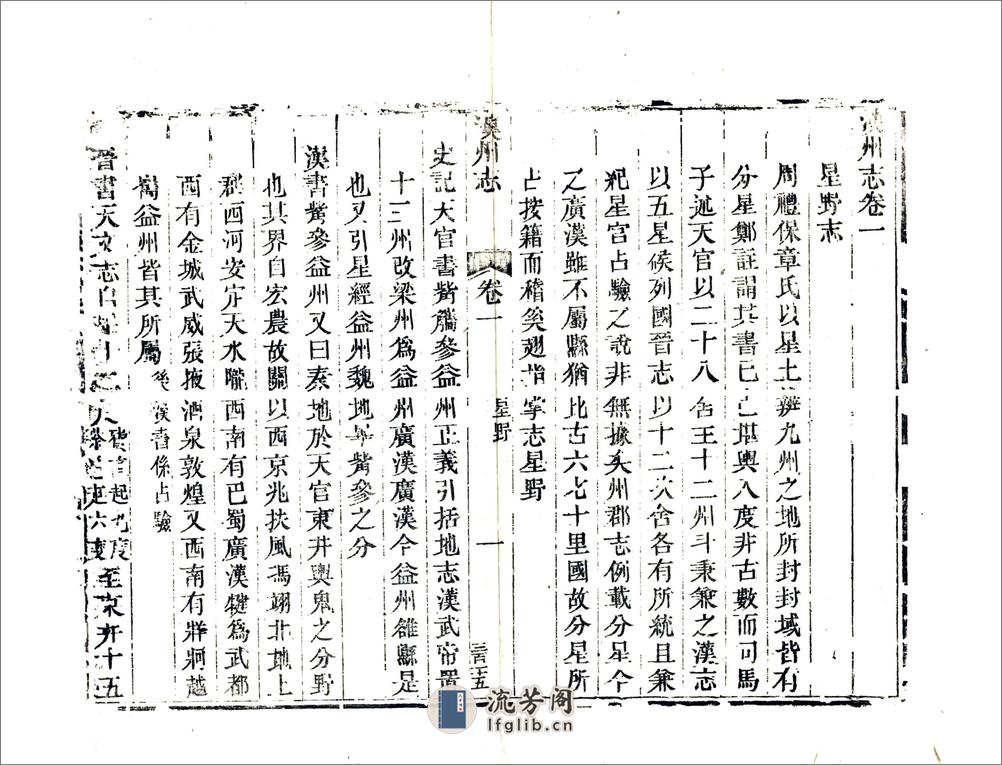 漢州志卷一
星野志
周禮保章氏以星土辨九州之地所封封域皆有
分星鄭註謂其書已亡堪輿入度非古數而司馬
子述天官以二十八舍主十二州斗秉兼之漢志
以五星候列國晉志以十二次舍各有所統且兼
紀星宮占驗之說非無據矣州郡志例載分星今
之廣漢雖不屬縣猶比古六七十里國故分星所
占按籍而稽矣趐指掌志星野
漢州志
卷一
星野
一
史記天官書觜觿參益州正義引括地志漢武帝置
十三州改梁州為益州廣漢廣漢今益州雒縣是
也又引星經益州魏地畢觜參之分
漢書觜參益州又曰秦地於天官東井輿鬼之分野
也其界自宏農故關以西京兆扶風馮翊北地上
郡西河安定天水隴西南有巴蜀廣漢犍為武都
西有金城武威張掖酒泉敦煌又西南有牂牁越
巂益州皆其所屬
係占驗
晉書天文志自 至東井十五
流芳阁
lfglib.cn